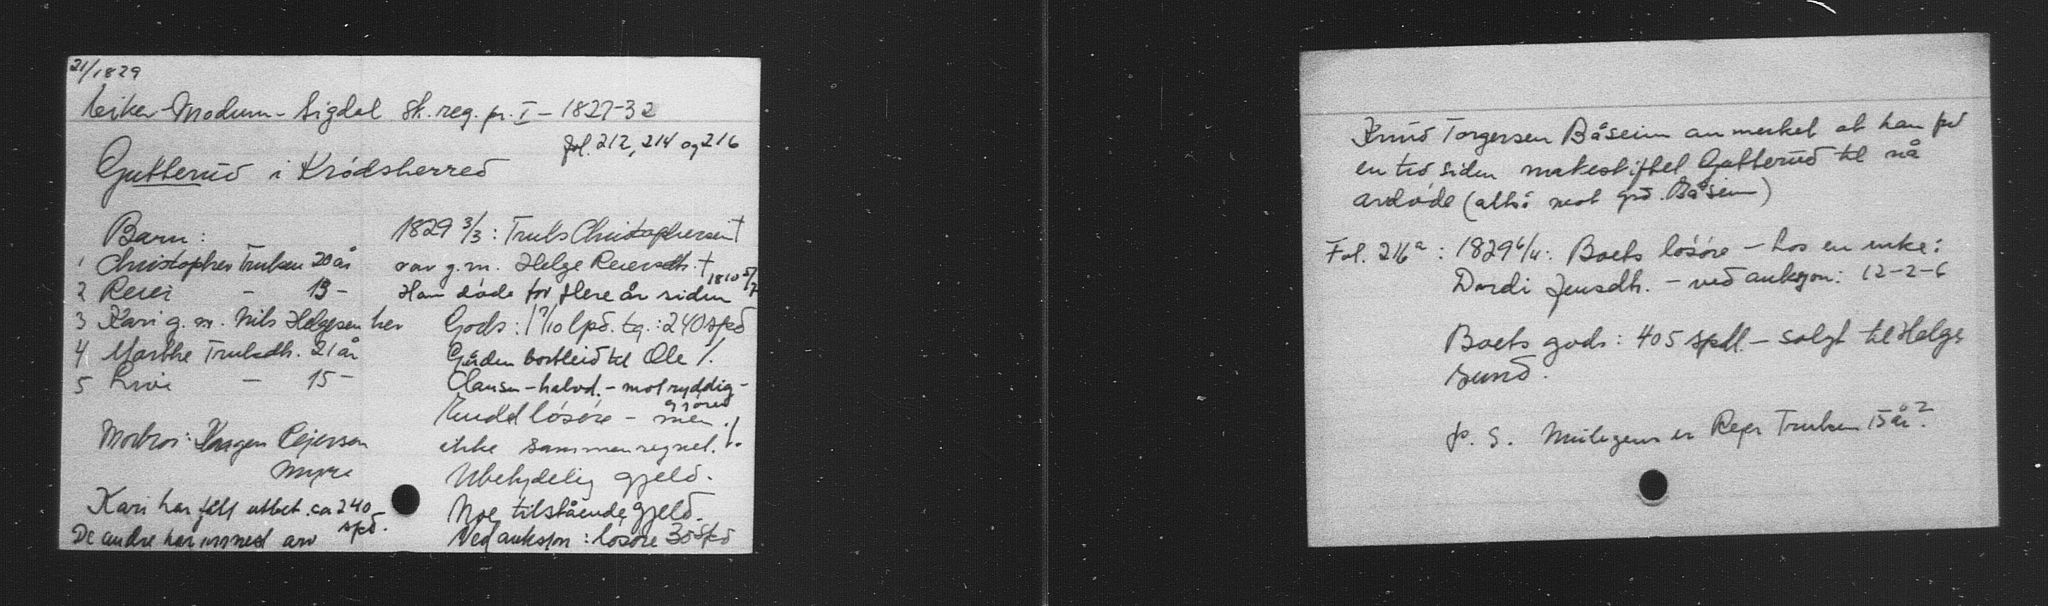 21/1829
Eiker-Modum-Sigdal sk.reg.pr. I - 1827-32
fol. 212, 214 og 216
Gutterud i Krødsherred
Barn:
1 Christopher Trulsen 20 år
2 Reier - 13 -
3 Kari g.m. Nils Helgesen her
4 Marthe Trulsdh. 21 år
5 Live - 15 -
Morbror: Reiersen
Myre
Kari har fått utbet. ca 240
spd.
De andre har arv
1829 3/3: Truls Christophersen †
var g.m. Helge Reiersdh. †
1810 5/7
Han døde for flere år siden
Gods: 1 7/10 lpd. tg.: 240 spd
Gården bortleid til Ole /.
Clausen - halvd. - mot ryddig-
gjøred
Endel løsøre - men
ikke sammenregnet. /.
Ubetydelig gjeld.
Noe tilstående gjeld.
Ved auksjon: løsøre 30 spd
Knud Torgersen Båseim anmerket at han for
en tid siden makeskiftet Gutterud til nå
avdøde (altså mot grd. Båseim)
Fol. 216a: 1829 6/4: Boets løsøre - hos en enke:
Dordi Jensdh. - ved auksjon: 12-2-6
Boets gods: 405 spdl. - solgt til Helge
Sund.
p. S. Muligens er Reier Trulsen 15 år?